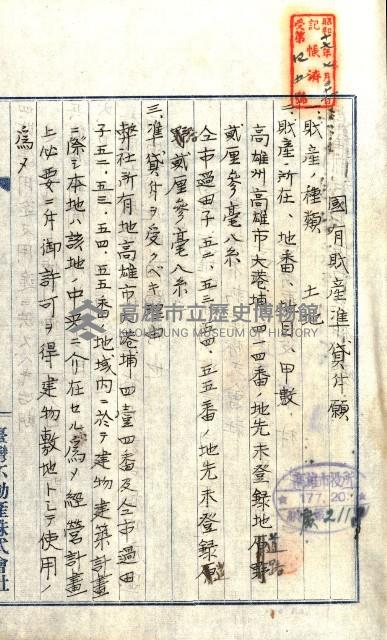 國有財產準貸付願
一、財產ノ種類 土
二、財產ノ所在、地番、地目、甲數
高雄州高雄市大港埔四一四番ノ地先未登錄地道路
貳厘參毫八糸
仝市過田子五二、五三、五四、五五番ノ地先未登錄
貳厘參毫八糸
三、準貸付ヲ受クベキ
弊社所有地高雄市大港埔四壹四番及仝市過田
子五二、五三、五四、五五番地域內ニ於テ建物建築計畫
ニ際シ本地ハ該地ノ中央ニ介在セル為メ經營計畫
上必要ニ付御許可ヲ得建物敷地トシテ使用ノ
為メ
臺灣不動產株式會社
記帳濟
昭和
受第
高雄市役所
177.20
高雄市立歷史博物館
KAOHSIUNG MUSEUM OF HISTORY